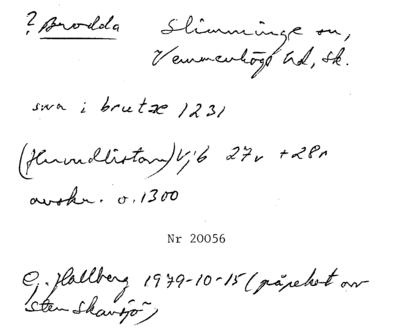 ? Brodda Slimminge sn,
Vemmenhögs hd, Sk.
swa i brutæ 1231
(Hundlistan) Vj b 27v + 28r
avskr. o. 1300
Nr 20056
G. Hallberg 1979-10-15 (påpekat av
Sten Skansjö)